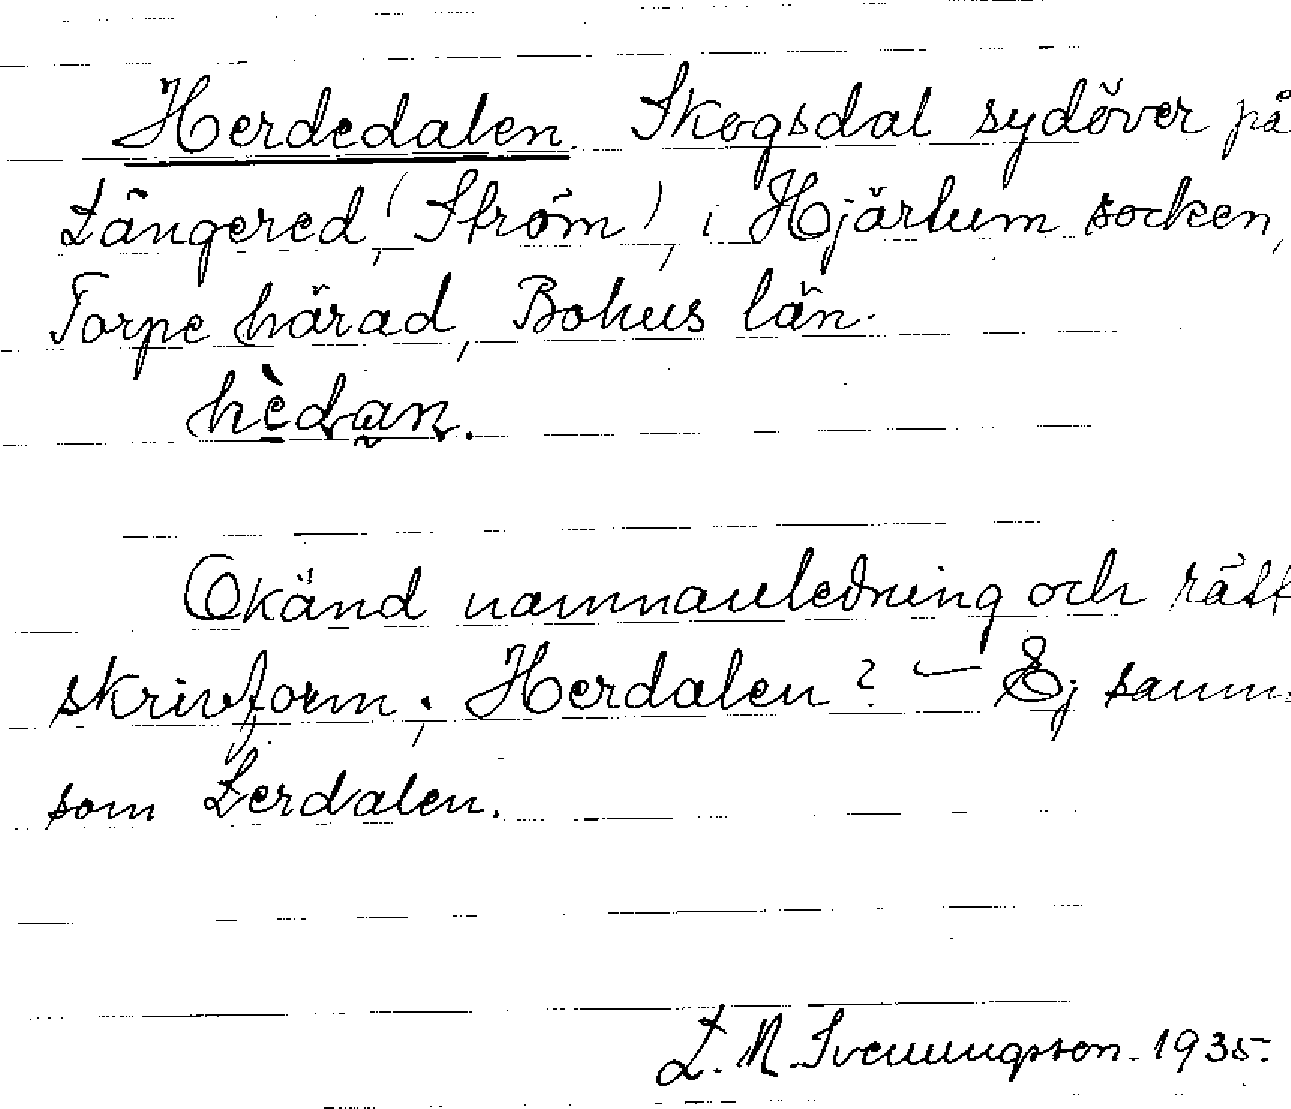 Herdedalen. Skogsdal sydöver på
Längered, (Ström), i Hjärtum socken,
Torpe härad, Bohus län.
hèdan.
Okänd namnanledning och rätt
skrivform; Herdalen? — Ej samm
som Lerdalen.
L. M. Svenungsson. 1935.